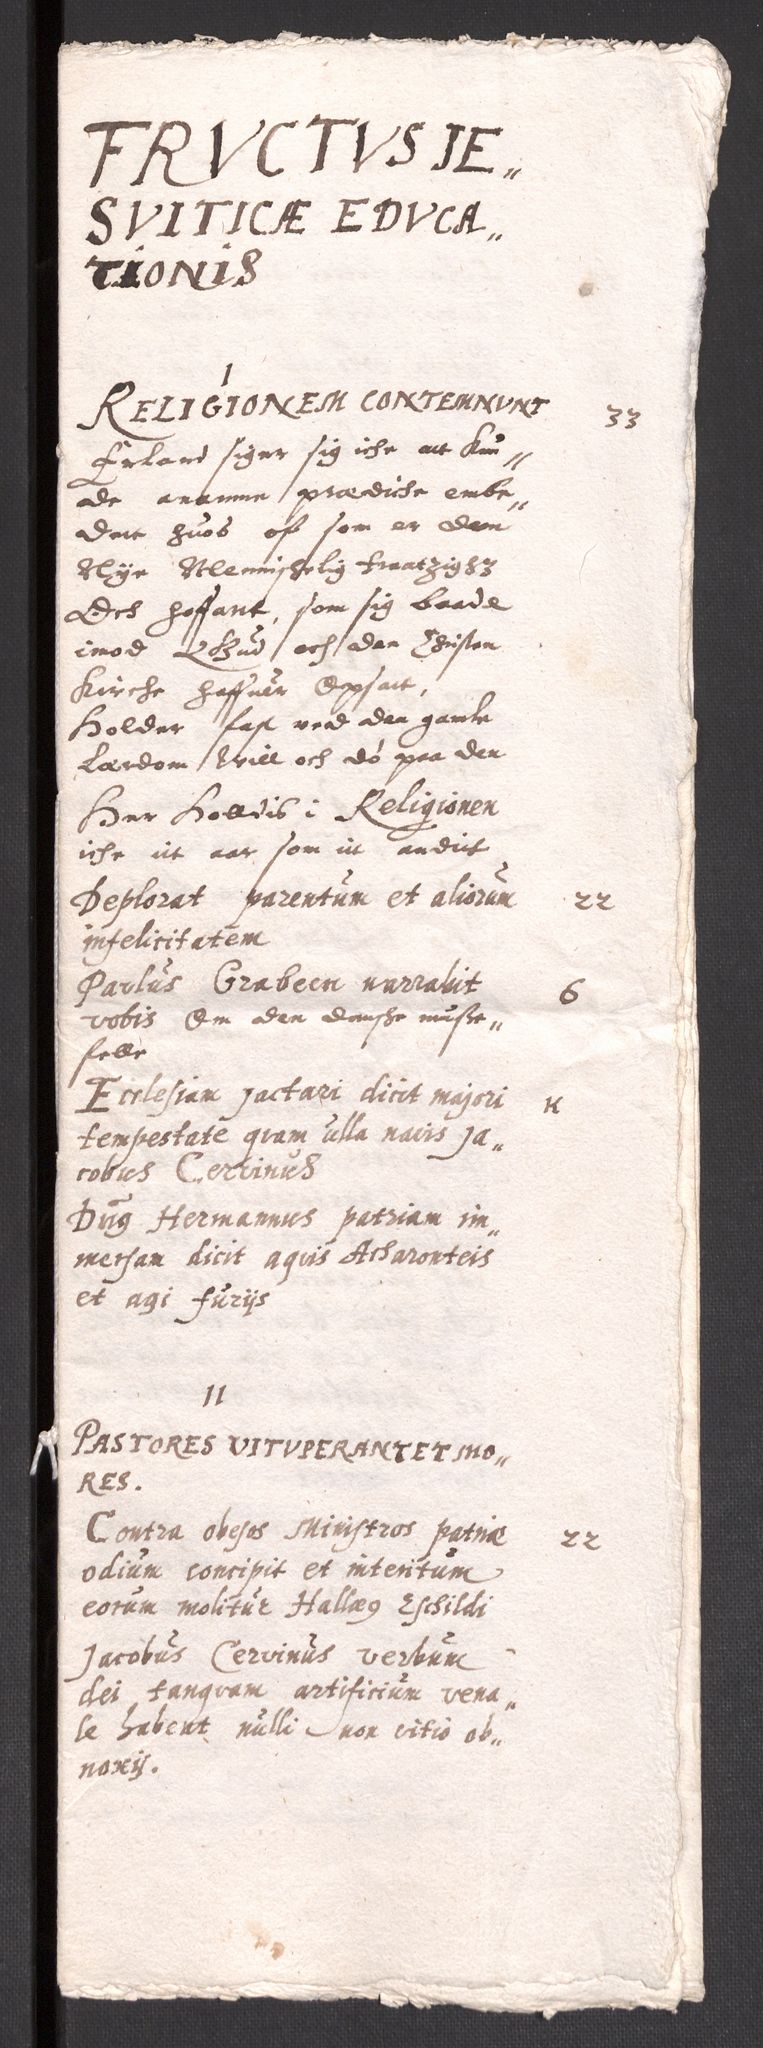 FRVCTVS JE„
SVITICÆ EDVCA„
TIONIS
I
RELIGIONEM CONTEMNVNT 33
Erland siger sig iche att kun„
de anamme prædiche embe„
dett huos oss som er den
Nÿe Menniskelig
Och hoffart, som sig baade
imod Gud och den Christen
Kirche haffuer Opsatt,
Holder fast ved den gamle
Lærdom Will och dó paa den
Her Holdis i Religionen
iche itt aar som itt anditt
Deplorat parentum et aliorum 22
infelicitatem
Paulus Grabeen narrabit 6
vobis Om den danske
Ecclesiam jactari dicit majori K
tempestate qvam ulla navis Ja„
cobus Cervinus
Dn9 Hermannus patriam im„
mersam dicit aqvis Acharonteis
et agi furijs
II
PASTORES VITVPERANT ET MO„
RES.
Contra obesos Ministros patriæ 22
odium concipit et interitum
eorum molitur Hallæg Eschildi
Jacobus Cervinus verbum
dei tanqvam artificium vena„
le habent nulli non vitio ob„
noxij.